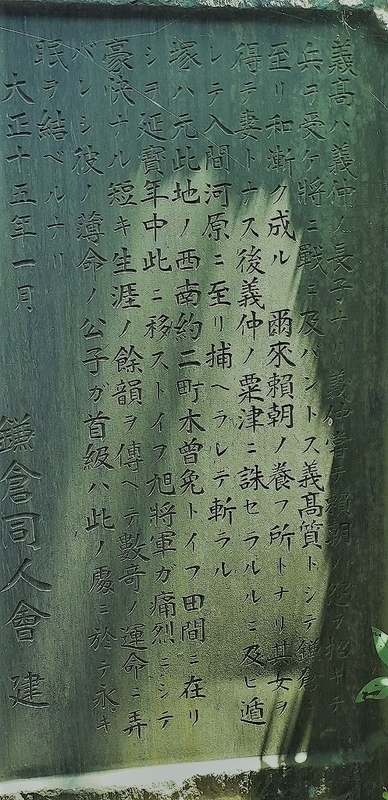 義高ハ義仲ノ長子ナリ 義仲嘗テ頼朝ノ怨 招キテ
兵ヲ受ケ將ニ戰ニ及バントス義高質トシテ鎌倉
至リ和漸ク成ル 爾來頼朝ノ養フ所トナリ其女ヲ
得テ妻トナス後義仲ノ粟津ニ誅セラルルニ及ビ遁
レテ入間河原ニ至リ捕ヘラレテ斬ラル
塚ハ元此地ノ西南約二町木曾免トイフ田間ニ在リ
シヲ延寶年中此ニ移ストイフ旭將軍ガ痛烈ニシテ
豪快ナル短キ生涯ノ餘韻ヲ傳ヘテ數奇ノ運命ニ弄
バレシ彼ノ薄命ノ公子ガ首級ハ此ノ處ニ於テ永キ
眠ヲ結ベルナリ
大正十五年一月
鎌倉同人會 建